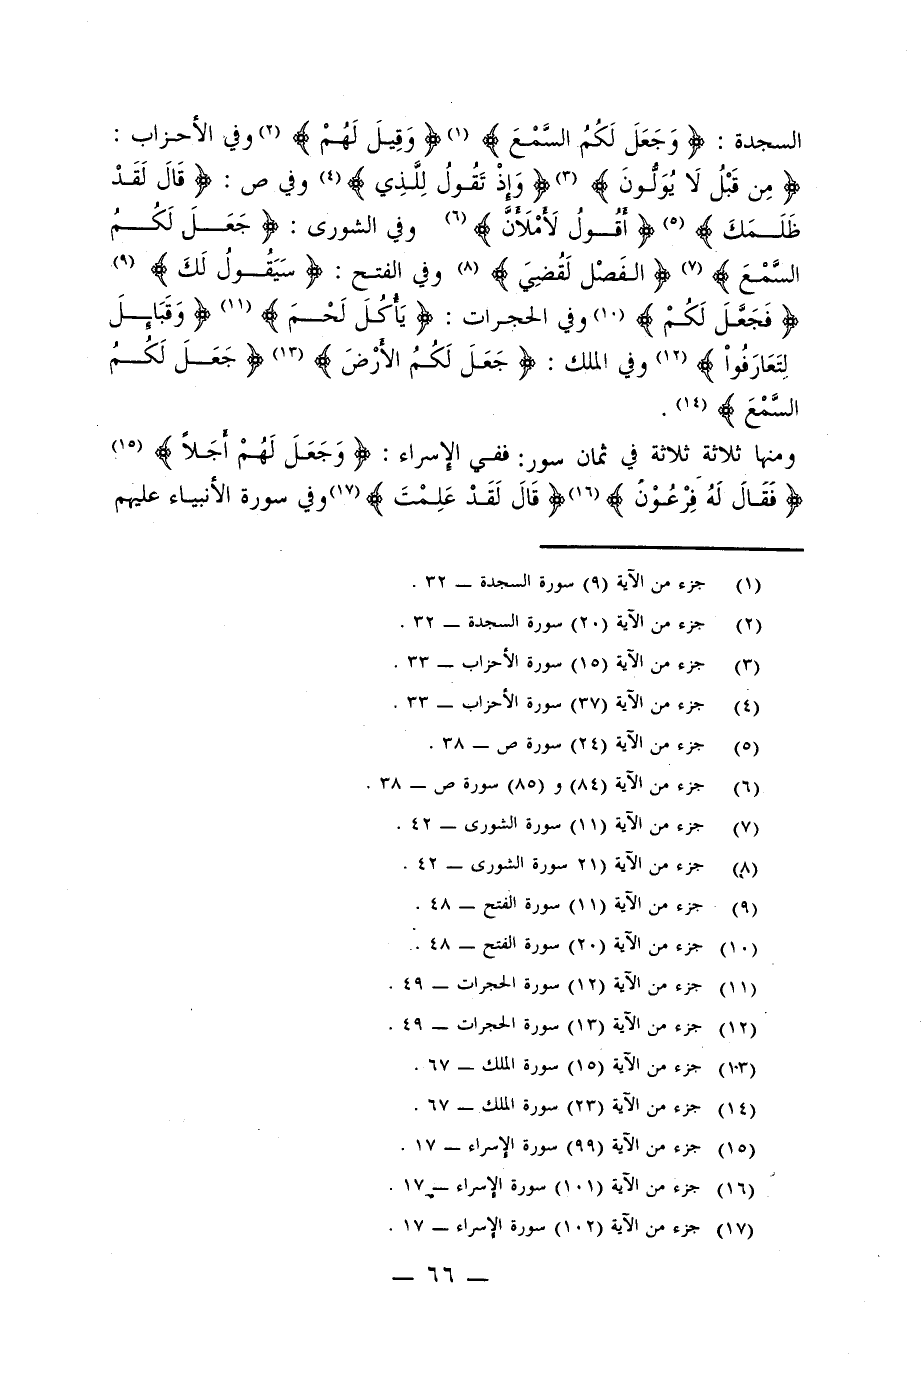 السجدة : ﴿ وَجَعَلَ لَكُمُ السَّمْعَ ﴾ (١) ﴿ وَقِيلَ لَهُمْ ﴾ (٢) وفي الأحزاب :
﴿ مِن قَبْلُ لَا يُوَلُّونَ ﴾ (٣) ﴿ وَإِذْ تَقُولُ لِلَّذِي ﴾ (٤) وفي ص : ﴿ قَالَ لَقَدْ
ظَلَمَكَ ﴾ (٥) ﴿ أَقُولُ لَأَمْلَأَنَّ ﴾ (٦) وفي الشورى : ﴿ جَعَلَ لَكُمُ
السَّمْعَ ﴾ (٧) ﴿ الفَصْلِ لَقُضِيَ ﴾ (٨) وفي الفتح : ﴿ سَيَقُولُ لَكَ ﴾ (٩)
﴿ فَجَعَّلَ لَكُمْ ﴾ (١٠) وفي الحجرات : ﴿ يَأْكُلَ لَحْمَ ﴾ (١١) ﴿ وَقَبَايِلَ
لِتَعَارَفُواْ ﴾ (١٢) وفي الملك : ﴿ جَعَلَ لَكُمُ الأَرْضَ ﴾ (١٣) ﴿ جَعَلَ لَكُمُ
السَّمْعَ ﴾ (١٤) .
ومنها ثلاثة ثلاثة في ثمان سور: ففي الإسراء : ﴿ وَجَعَلَ لَهُمْ أَجَلاً ﴾ (١٥)
﴿ فَقَالَ لَهُ فِرْعَوْنُ ﴾ (١٦) ﴿ قَالَ لَقَدْ عَلِمْتَ ﴾ (١٧) وفي سورة الأنبياء عليهم
(١) جزء من الآية (٩) سورة السجدة — ٣٢ .
(٢) جزء من الآية (٢٠) سورة السجدة — ٣٢ .
(٣) جزء من الآية (١٥) سورة الأحزاب — ٣٣ .
(٤) جزء من الآية (٣٧) سورة الأحزاب — ٣٣ .
(٥) جزء من الآية (٢٤) سورة ص — ٣٨ .
(٦) جزء من الآية (٨٤) و (٨٥) سورة ص — ٣٨ .
(٧) جزء من الآية (١١) سورة الشورى — ٤٢ .
(٨) جزء من الآية (٢١ سورة الشورى — ٤٢ .
(٩) جزء من الآية (١١) سورة الفتح — ٤٨ .
(١٠) جزء من الآية (٢٠) سورة الفتح — ٤٨ .
(١١) جزء من الآية (١٢) سورة الحجرات — ٤٩ .
(١٢) جزء من الآية (١٣) سورة الحجرات — ٤٩ .
(١٠٣) جزء من الآية (١٥) سورة الملك — ٦٧ .
(١٤) جزء من الآية (٢٣) سورة الملك — ٦٧ .
(١٥) جزء من الآية (٩٩) سورة الإسراء — ١٧ .
(١٦) جزء من الآية (١٠١) سورة الإسراء — ١٧ .
(١٧) جزء من الآية (١٠٢) سورة الإسراء — ١٧ .
— ٦٦ —